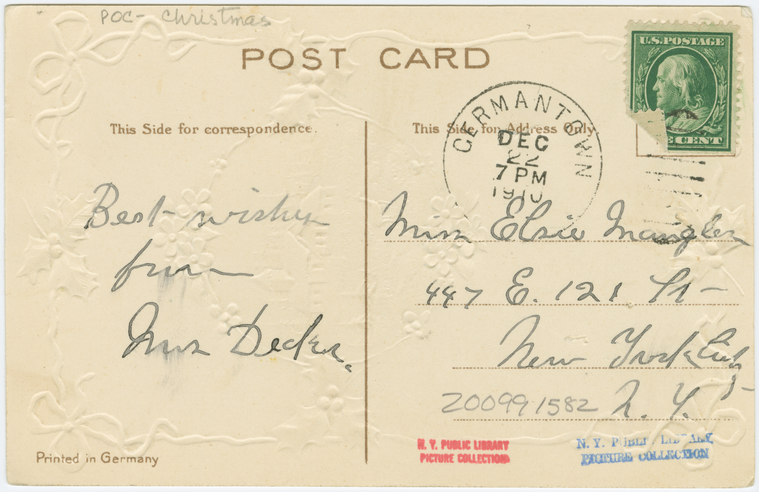 POC- Christmas
POST CARD
U.S. POSTAGE
CENT
This Side for correspondence.
This Side for Address Only
GERMANTOWN
DEC
22
7 PM
1910
Best wishes
from
Mrs Decker.
Miss Elsie
447 E. 121 St
New York City
N. Y.
200991582
N. Y. PUBLIC LIBRARY
PICTURE COLLECTION
N. Y. PUBLIC LIBRARY
PICTURE COLLECTION
Printed in Germany